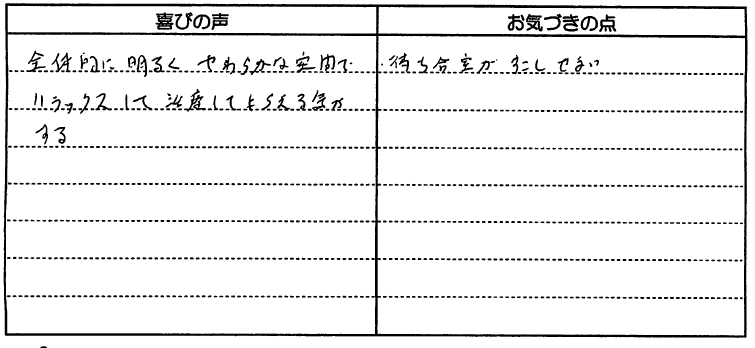 喜びの声
お気づきの点
全体的に明るくやわらかな空間で
リラックスして治療してもらえる気が
する
・待ち合室が少しせまい